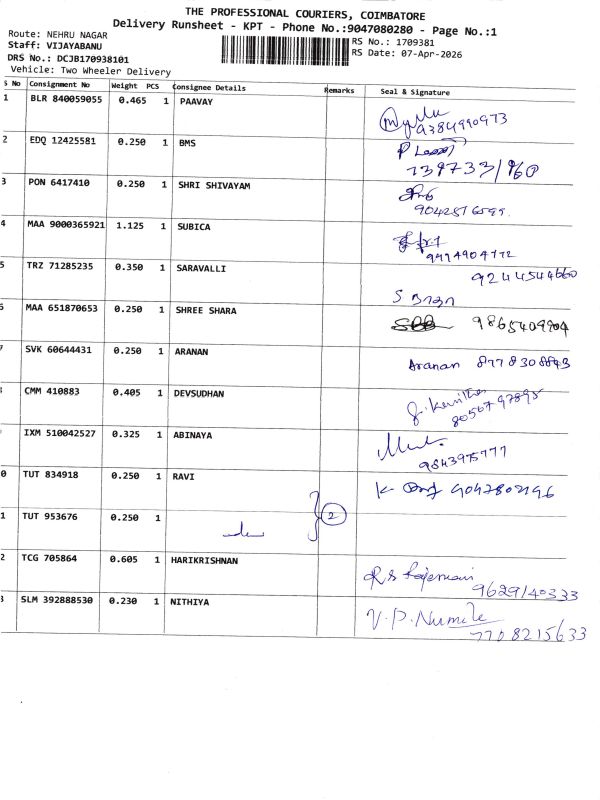 THE PROFESSIONAL COURIERS, COIMBATORE
Delivery Runsheet - KPT - Phone No.:9047080280 - Page No.:1
Route: NEHRU NAGAR
Staff: VIJAYABANU
RS No.: 1709381
DRS No.: DCJB170938101
RS Date: 07-Apr-2026
Vehicle: Two Wheeler Delivery
S No Consignment No Weight PCS Consignee Details Remarks Seal & Signature
1 BLR 840059055 0.465 1 PAAVAY
9384990973
2 EDQ 12425581 0.250 1 BMS
3 PON 6417410 0.250 1 SHRI SHIVAYAM
4 MAA 9000365921 1.125 1 SUBICA
5 TRZ 71285235 0.350 1 SARAVALLI
9244544660
6 MAA 651870653 0.250 1 SHREE SHARA
9865409904
7 SVK 60644431 0.250 1 ARANAN
Aranan 8778308843
CMM 410883 0.405 1 DEVSUDHAN
IXM 510042527 0.325 1 ABINAYA
0 TUT 834918 0.250 1 RAVI
1 TUT 953676 0.250 1
2
2 TCG 705864 0.605 1 HARIKRISHNAN
9629140333
3 SLM 392888530 0.230 1 NITHIYA
7708215633